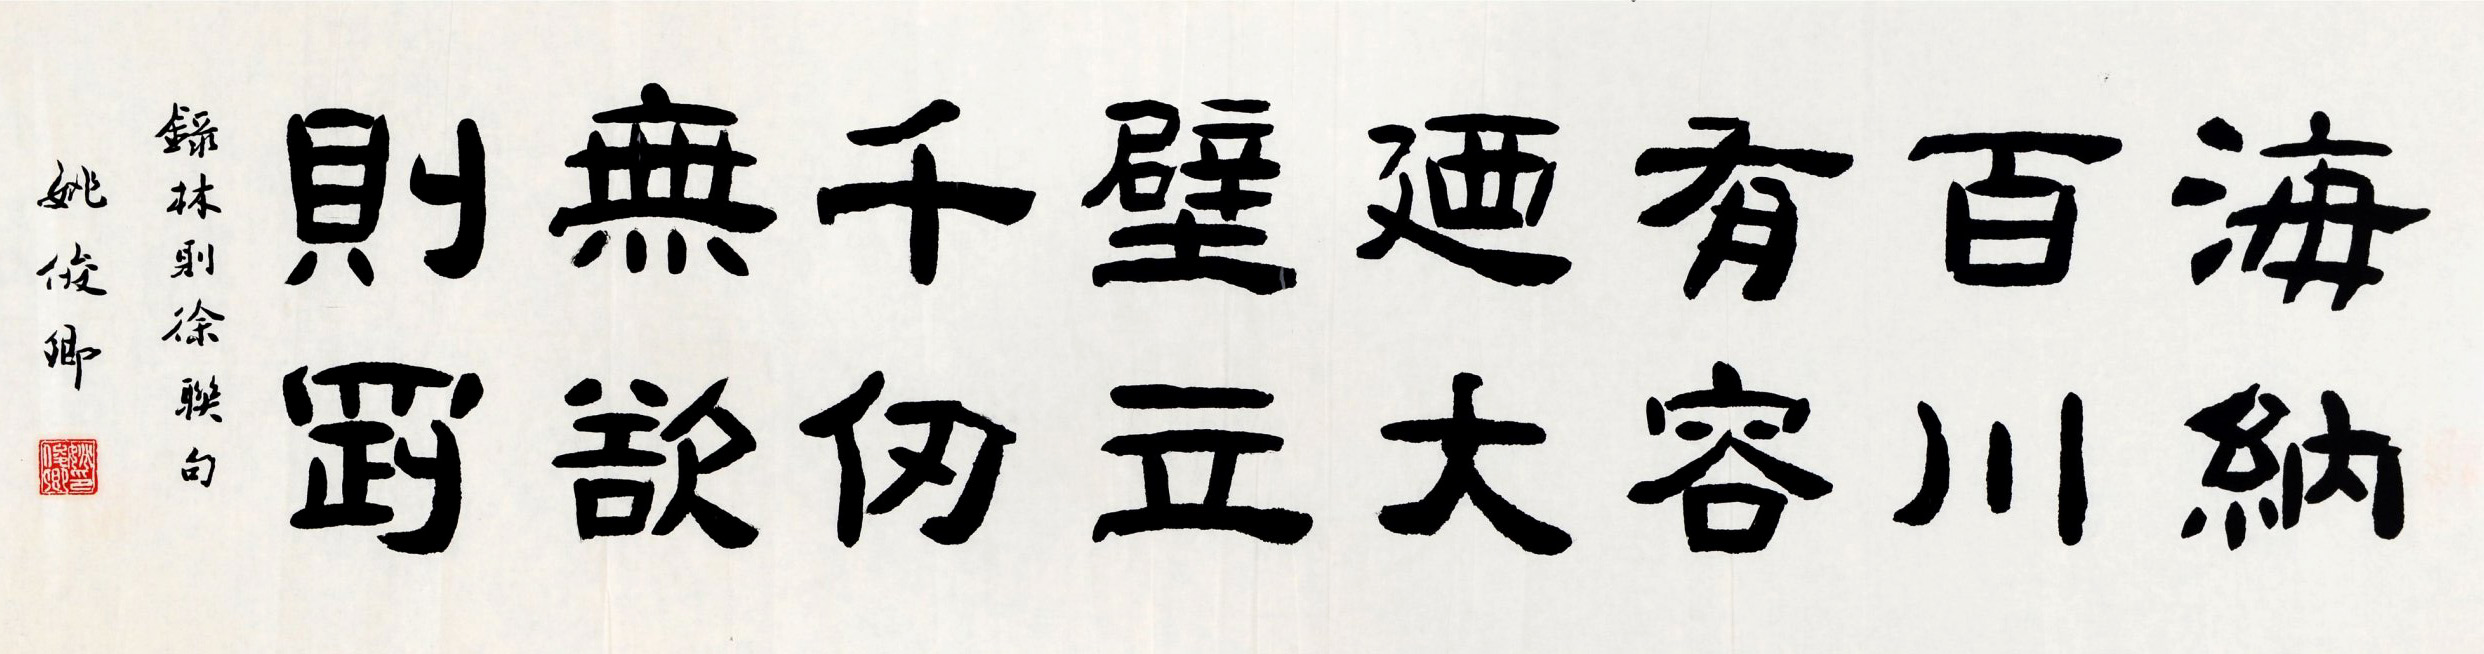 海納
百川
有容
廼大
壁立
千仞
無欲
則剛
錄林則徐聯句
姚俊卿
姚印俊卿